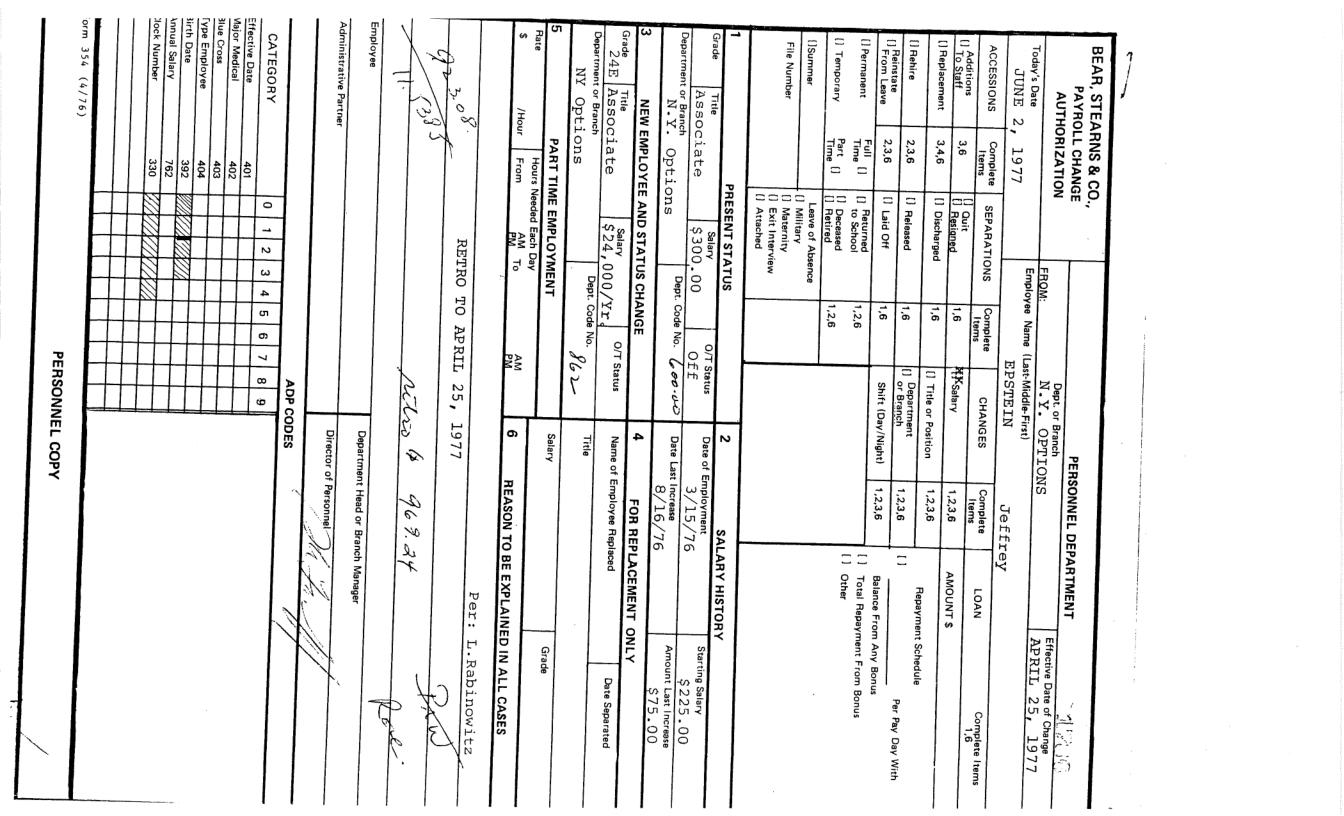 BEAR, STEARNS & CO.,
PAYROLL CHANGE
AUTHORIZATION
PERSONNEL DEPARTMENT
Today's Date
JUNE 2, 1977
FROM:
Dept. or Branch
N.Y. OPTIONS
Effective Date of Change
APRIL 25, 1977
Employee Name (Last-Middle-First)
EPSTEIN Jeffrey
ACCESSIONS Complete Items SEPARATIONS Complete Items CHANGES Complete Items LOAN Complete Items
[] Additions To Staff 3,6 [] Quit [] Resigned 1,6 XX Salary 1,2,3,6 AMOUNT $ 1,6
[] Replacement 3,4,6 [] Discharged 1,6 [] Title or Position 1,2,3,6
[] Rehire 2,3,6 [] Released 1,6 [] Department or Branch 1,2,3,6 Repayment Schedule
[] Reinstate From Leave 2,3,6 [] Laid Off 1,6 Shift (Day/Night) 1,2,3,6 [] Per Pay Day With
Balance From Any Bonus
[] Permanent Full Time [] [] Returned to School 1,2,6 [] Total Repayment From Bonus
[] Temporary Part Time [] [] Deceased [] Retired 1,2,6 [] Other
[] Summer Leave of Absence
[] Military
File Number [] Maternity
[] Exit Interview
[] Attached
1 PRESENT STATUS
Grade Title Salary O/T Status
Associate $300.00 Off
Department or Branch Dept. Code No.
N.Y. Options 600.00
2 SALARY HISTORY
Date of Employment Starting Salary
3/15/76 $225.00
Date Last Increase Amount Last Increase
8/16/76 $75.00
3 NEW EMPLOYEE AND STATUS CHANGE
Grade Title Salary O/T Status
24E Associate $24,000/Yr.
Department or Branch Dept. Code No.
NY Options 862
4 FOR REPLACEMENT ONLY
Name of Employee Replaced Date Separated
Title
Salary Grade
5 PART TIME EMPLOYMENT
Rate Hours Needed Each Day
$ /Hour From AM PM To AM PM
6 REASON TO BE EXPLAINED IN ALL CASES
RETRO TO APRIL 25, 1977 Per: L.Rabinowitz
923.08
969.24
Employee
Department Head or Branch Manager
Administrative Partner
Director of Personnel
CATEGORY
ADP CODES
0 1 2 3 4 5 6 7 8 9
Effective Date 401
Major Medical 402
Blue Cross 403
Type Employee 404
Birth Date 392
Annual Salary 762
Clock Number 330
orm 354 (4/76)
PERSONNEL COPY